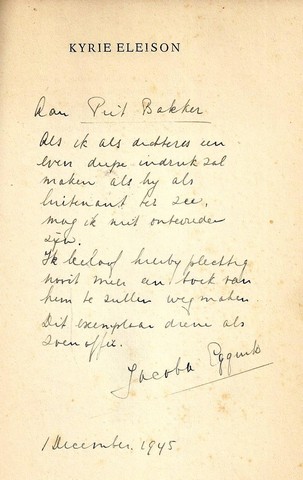 KYRIE ELEISON
Aan Piet Bakker
Als ik als dichteres een
even diepe indruk zal
maken als hy als
luitenant ter zee,
mag ik niet ontevreden
zyn.
Ik beloof hierby plechtig
nooit meer een boek van
hem te zullen weg maken.
Dit exemplaar diene als
zoenoffer.
Jacoba Eggink
1 December. 1945